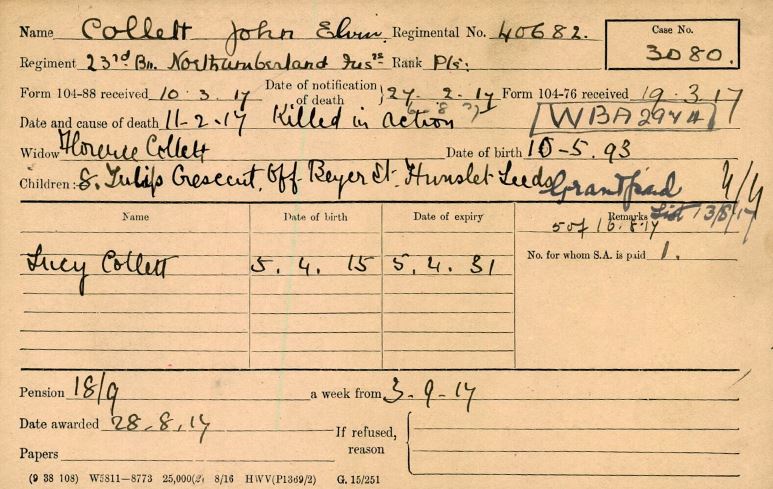 Name Collett John Elvin Regimental No. 40682. Case No.
3080.
Regiment 23rd Bn. Northumberland Fusrs Rank Pte.
Form 104-88 received 10.3.17 Date of notification of death } 27.2.17 Form 104-76 received 19.3.17
Date and cause of death 11-2-17 Killed in action WBA 2944
Widow Florence Collett Date of birth 10-5.93
Children:- 8. Tulip Crescent, Off Beyer St. Hunslet Leeds Grant paid 4/4
List 13/8/17
Name Date of birth Date of expiry Remarks
5 of 16.8.17
Lucy Collett 5.4.15 5.4.31 No. for whom S.A. is paid 1.
Pension 18/9 a week from 3-9-17
Date awarded 28.8.17
If refused, reason
Papers
(9 38 108) W5811—8773 25,000(2) 8/16 HWV(P1369/2) G. 15/251